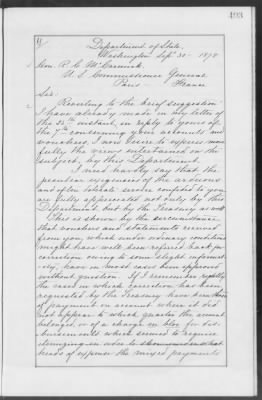 493
Department of State,
Washington Sept 30 - 1878
Hon. R. C. McCormick
U. S. Commissioner General
Paris France
Sir:
Reverting to the brief suggestion
I have already made in my letter of
the 25th instant, in reply to yours of
the 7th concerning your accounts and
vouchers, I now desire to express more
fully the views entertained on the
subject, by this Department.
I need hardly say that the
peculiar exigencies of the arduous
and often delicate service confided to you
are fully appreciated not only by this
Department but by the Treasury as well
This is shown by the circumstance
that vouchers and statements received
from you, which under ordinary conditions
might have well been referred back for
correction owing to some slight informal-
ity, have in most cases been approved
without question. If I remember rightly
the cases in which correction has been
requested by the Treasury have been those
of payments on account where it did
not appear to which quarter the amount
belonged, or of a charge in bloc for dis-
bursements which seemed to require
itemizing in order to
heads of expense the mixed payments